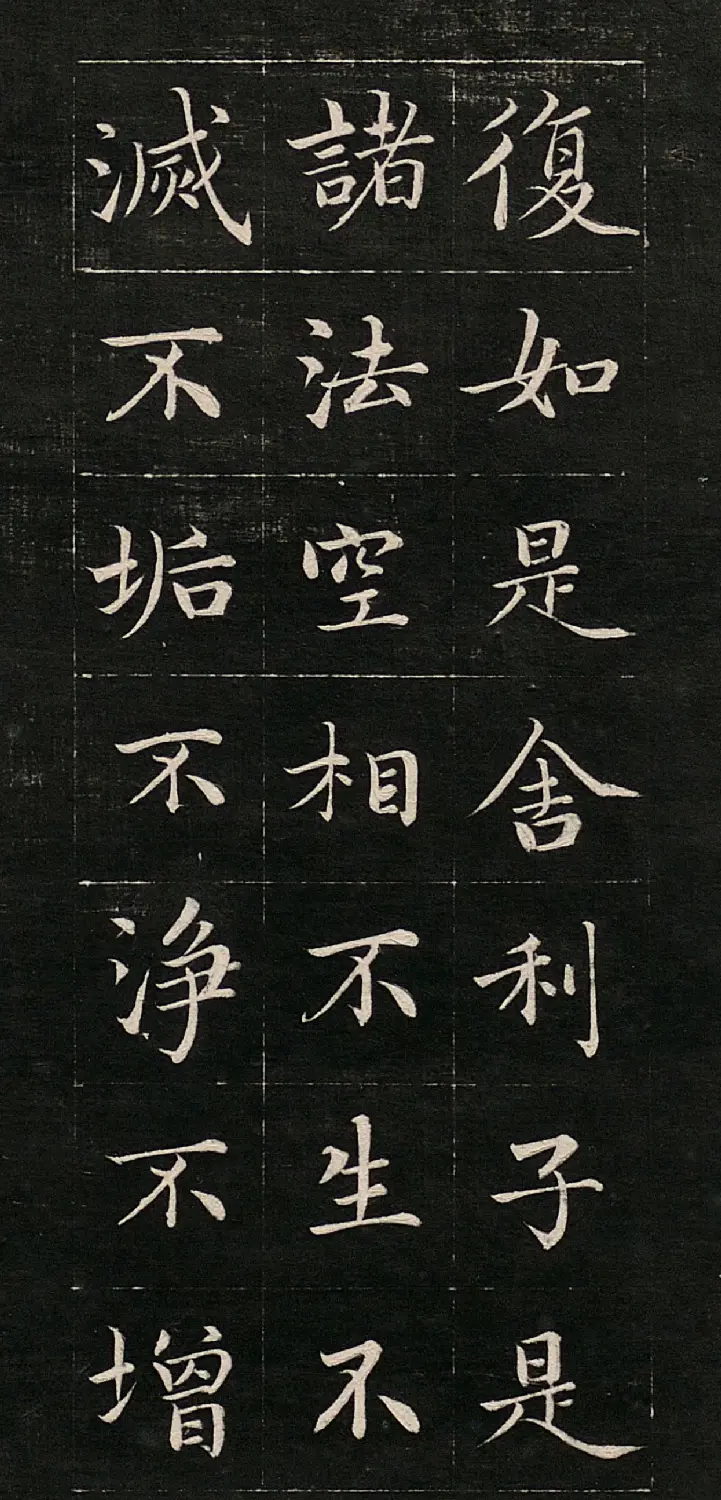 復如是舍利子是
諸法空相不生不
滅不垢不淨不增